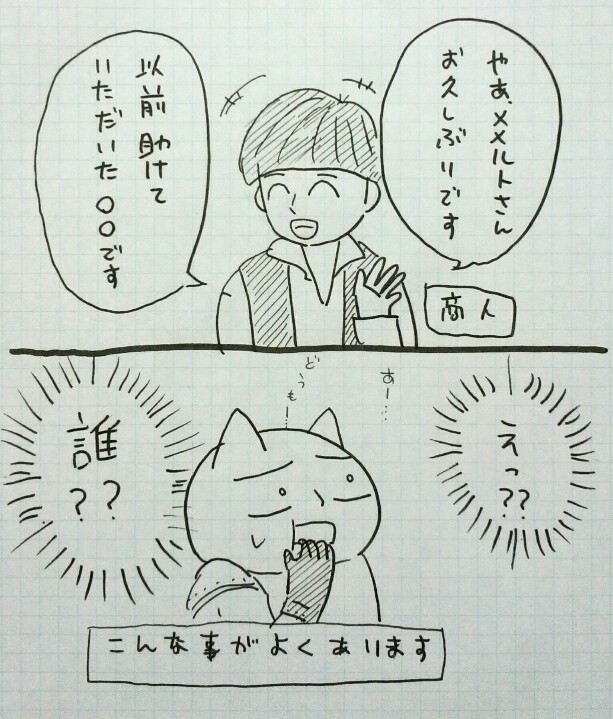 やあ、メメルトさん
お久しぶりです
以前助けて
いただいた〇〇です
商人
えっ??
あー…
どぅもー…
誰
??
こんな事がよくあります